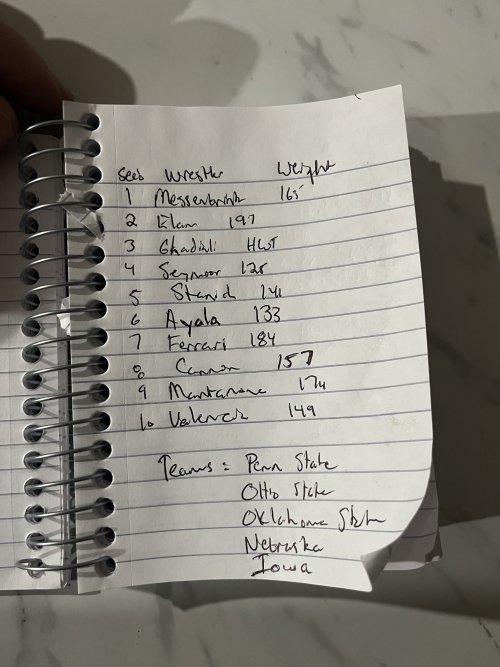 Seed Wrestler Weight
1 Messenbrink 165
2 Elam 197
3 Ghadiali HWT
4 Seymour 125
5 Stanich 141
6 Ayala 133
7 Ferrari 184
8 Cannon 157
9 Mantanona 174
10 Valencia 149
Teams: Penn State
Ohio State
Oklahoma State
Nebraska
Iowa